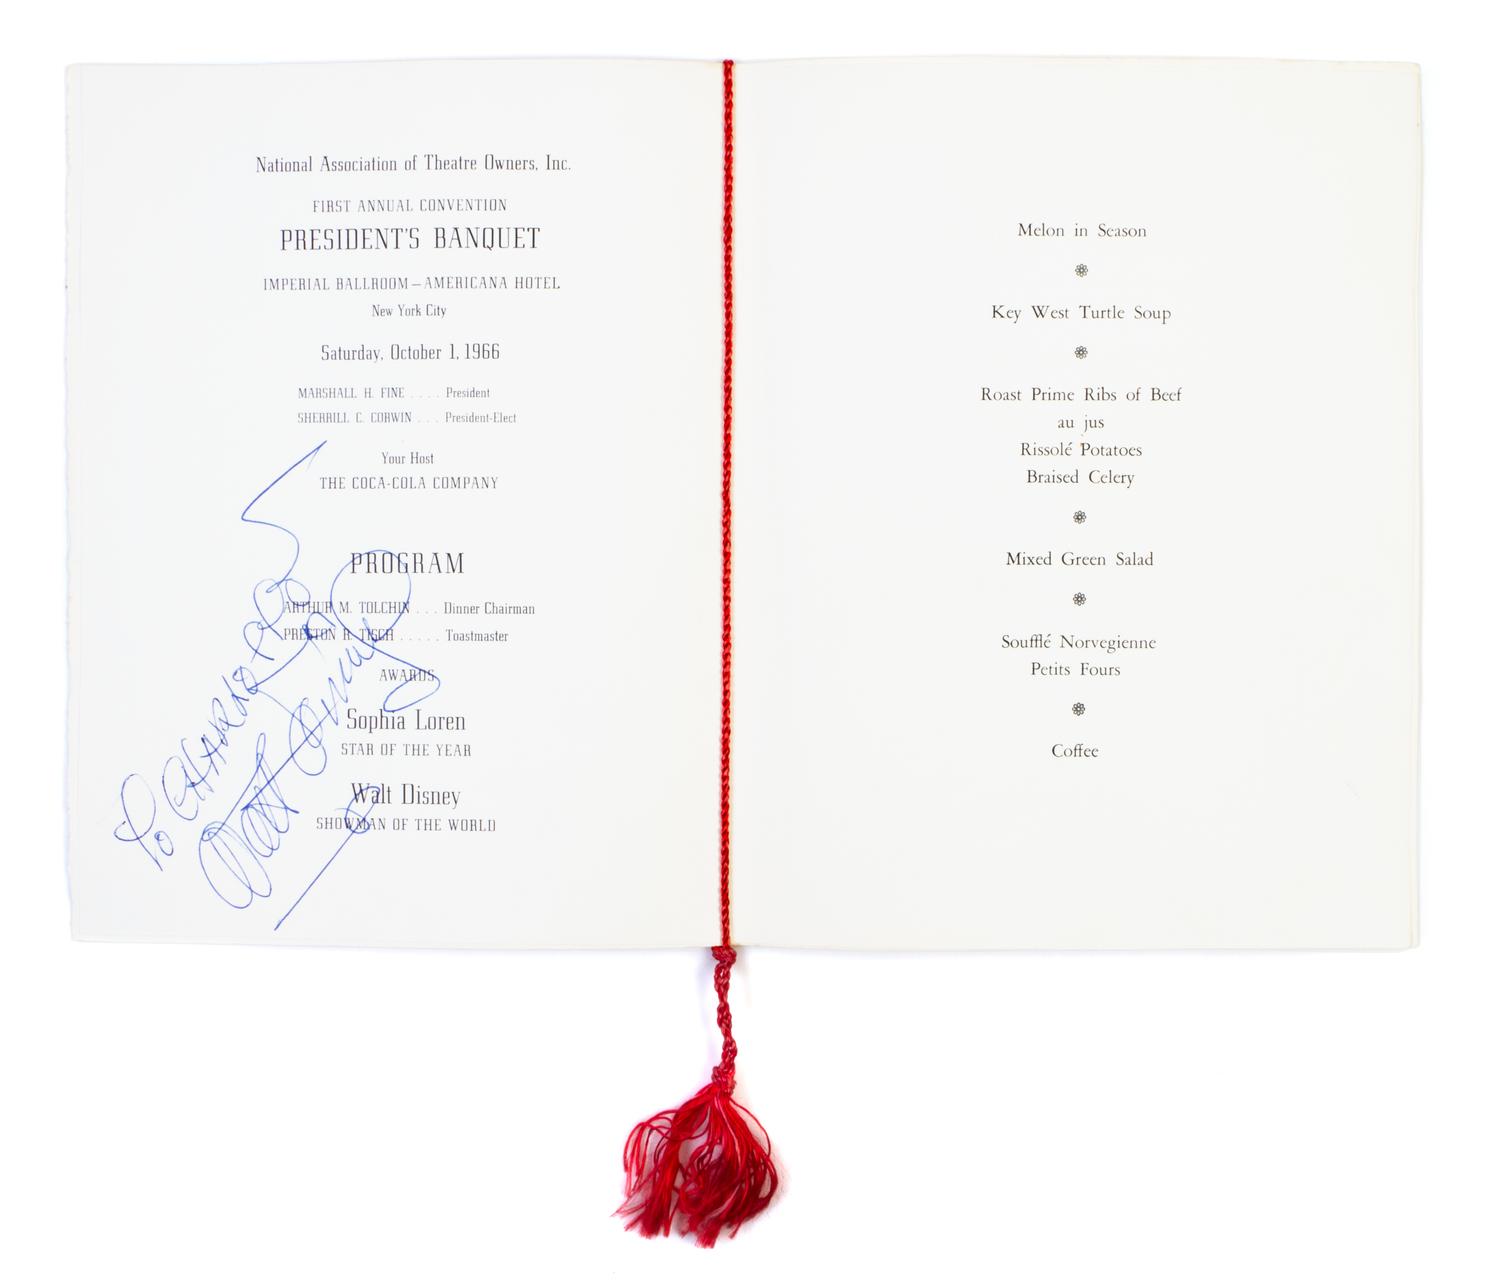 National Association of Theatre Owners, Inc.
FIRST ANNUAL CONVENTION
PRESIDENT'S BANQUET
IMPERIAL BALLROOM—AMERICANA HOTEL
New York City
Saturday, October 1, 1966
MARSHALL H. FINE . . . . President
SHERRILL C. CORWIN . . . President-Elect
Your Host
THE COCA-COLA COMPANY
PROGRAM
ARTHUR M. TOLCHIN . . . Dinner Chairman
PRESTON R. TISCH . . . . . Toastmaster
AWARDS
Sophia Loren
STAR OF THE YEAR
Walt Disney
SHOWMAN OF THE WORLD
To
Walt Disney
Melon in Season
Key West Turtle Soup
Roast Prime Ribs of Beef
au jus
Rissolé Potatoes
Braised Celery
Mixed Green Salad
Soufflé Norvegienne
Petits Fours
Coffee